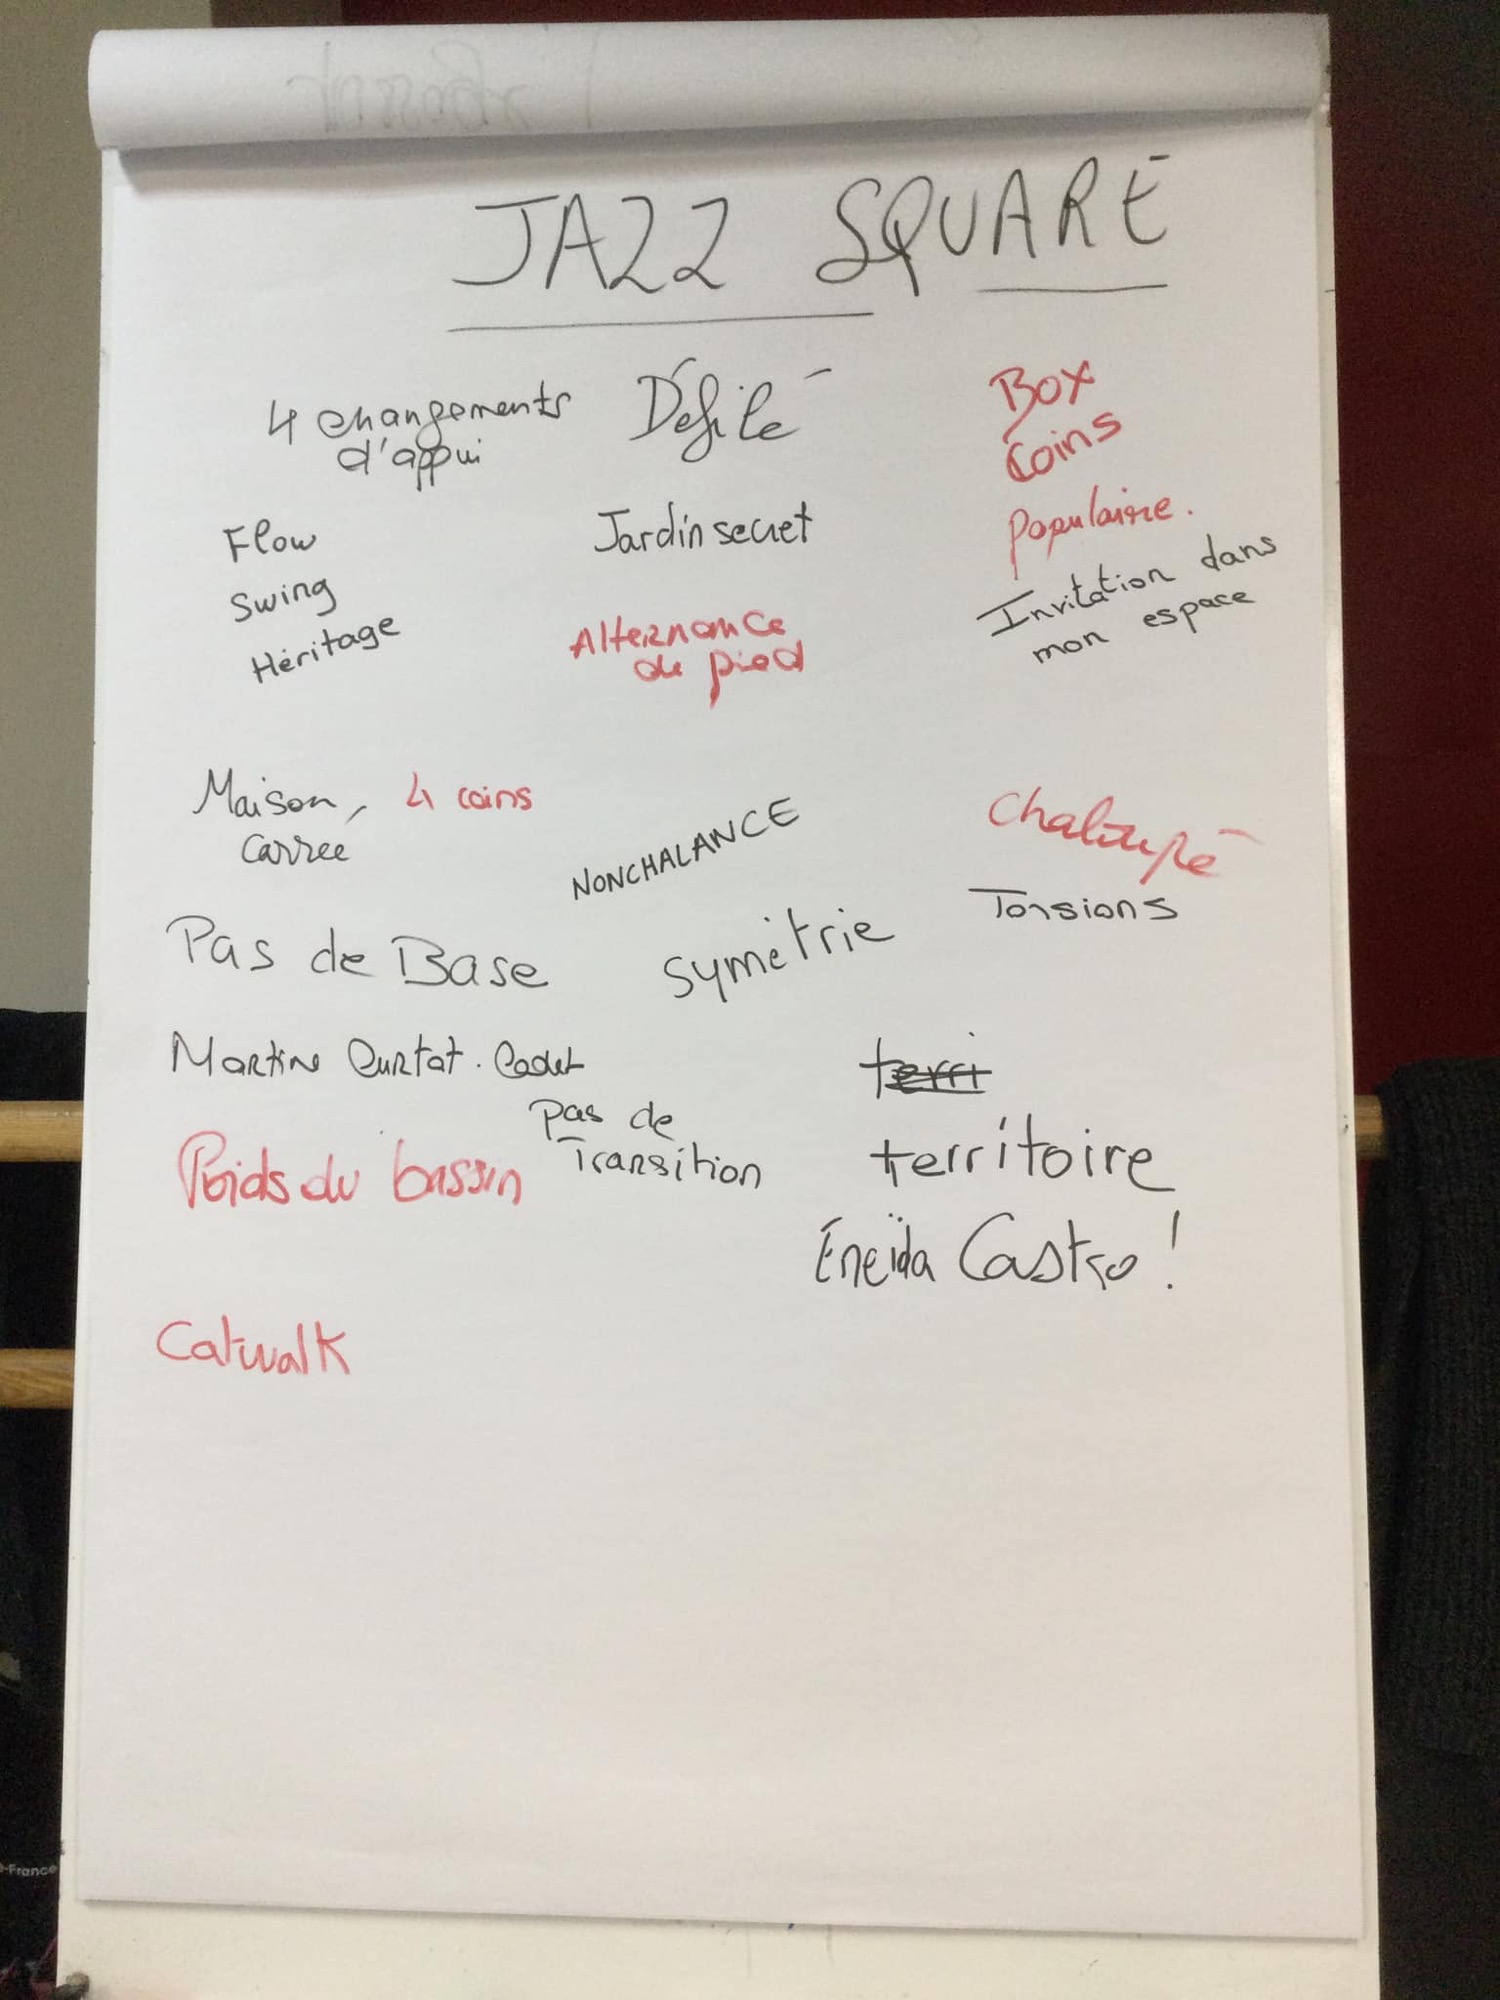 JAZZ SQUARE
4 changements
d'appui
Défilé
Box
Coins
Populaire.
Flow
Swing
Héritage
Jardin secret
Invitation dans
mon espace
Alternance
de pied
Maison, 4 coins
Carrée
NONCHALANCE
Chaloupé
Torsions
Pas de Base
Symétrie
Martine Curtat. Cadet
terri
Pas de
Transition
territoire
Poids du bassin
Eneïda Castro !
Catwalk
-France